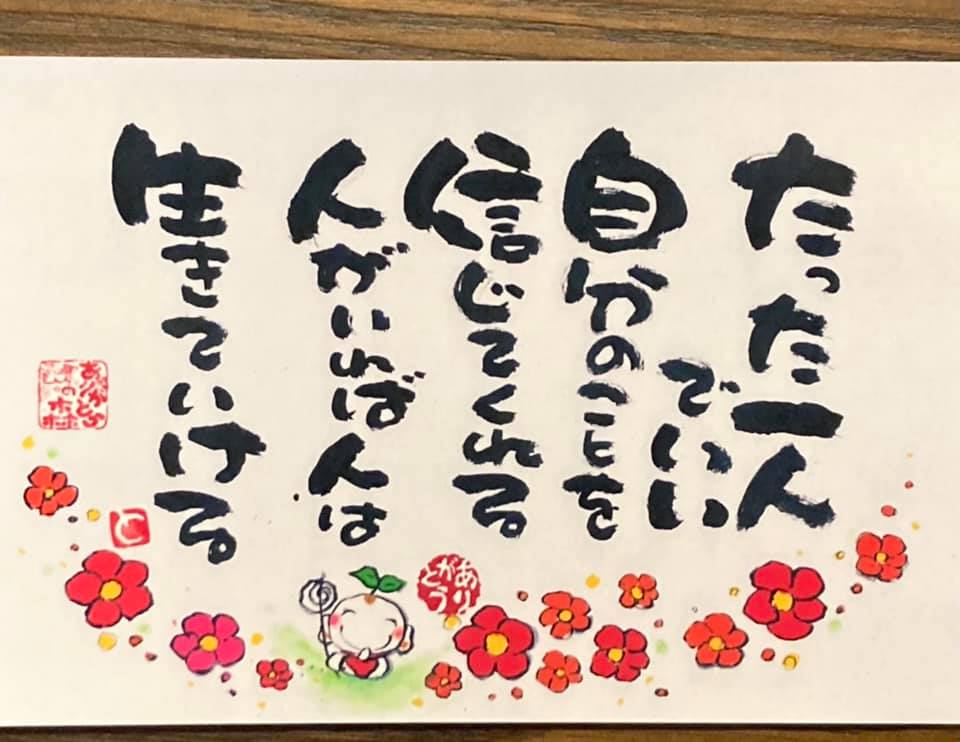 たった一人
でいい
自分のことを
信じてくれる
人がいれば人は
生きていける
ありがとう
の森
ありがとう